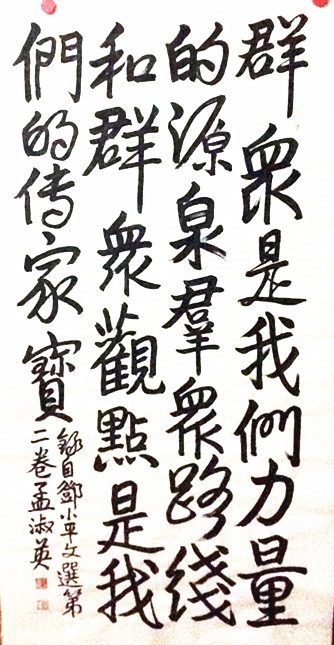 群衆是我們力量
的源泉羣眾路綫
和群衆觀點是我
們的傳家寶
錄自鄧小平文選第
二卷孟淑英